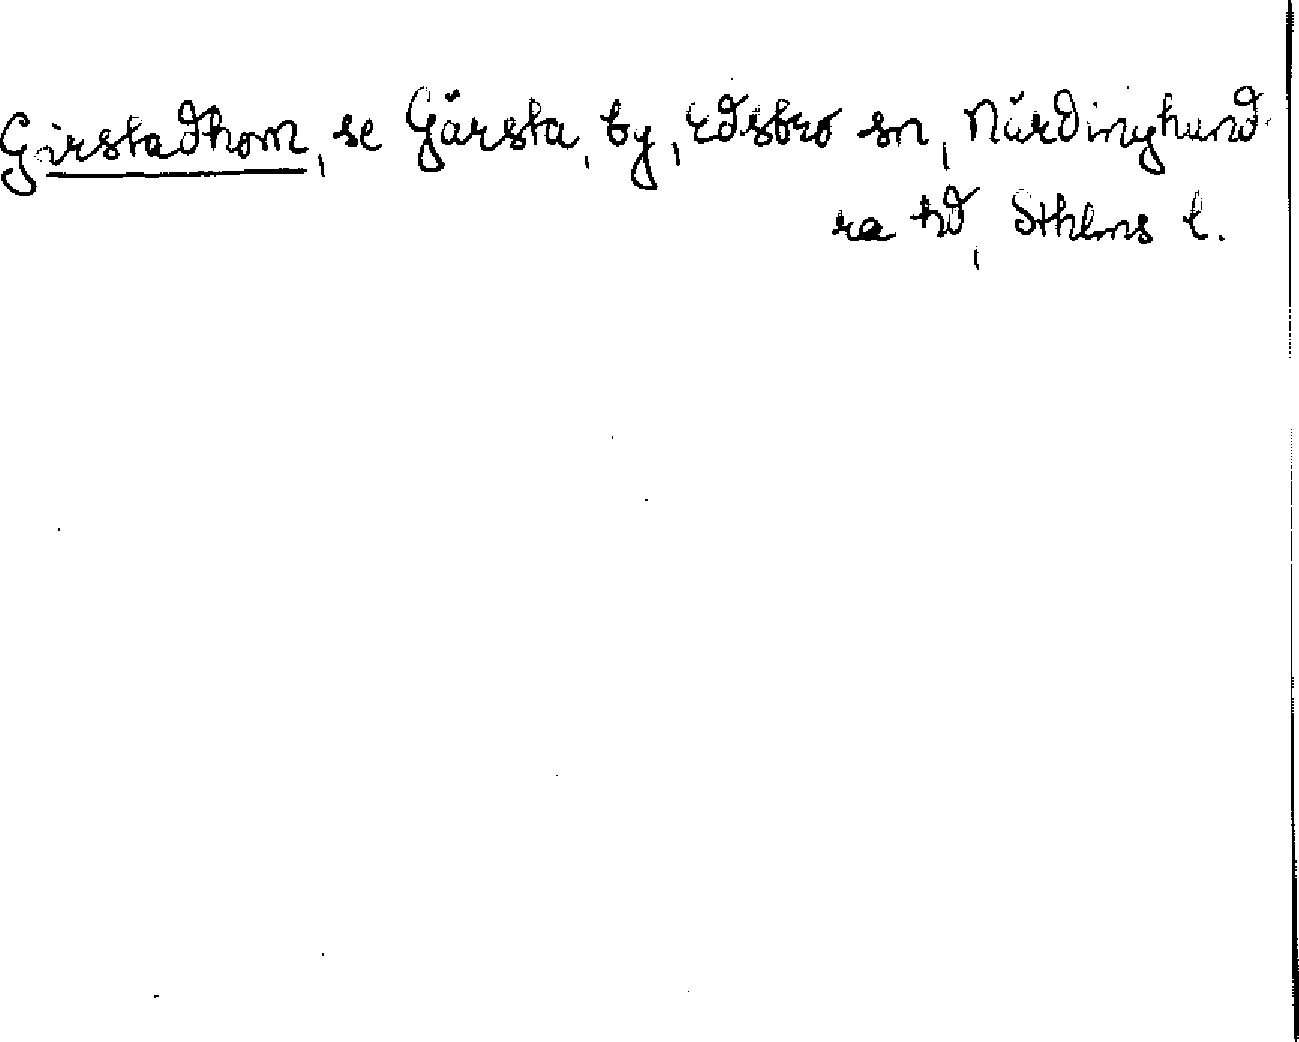 Girstadhom, se Gärsta, by, Edsbro sn, Närdinghund-
ra hd, Sthlms l.